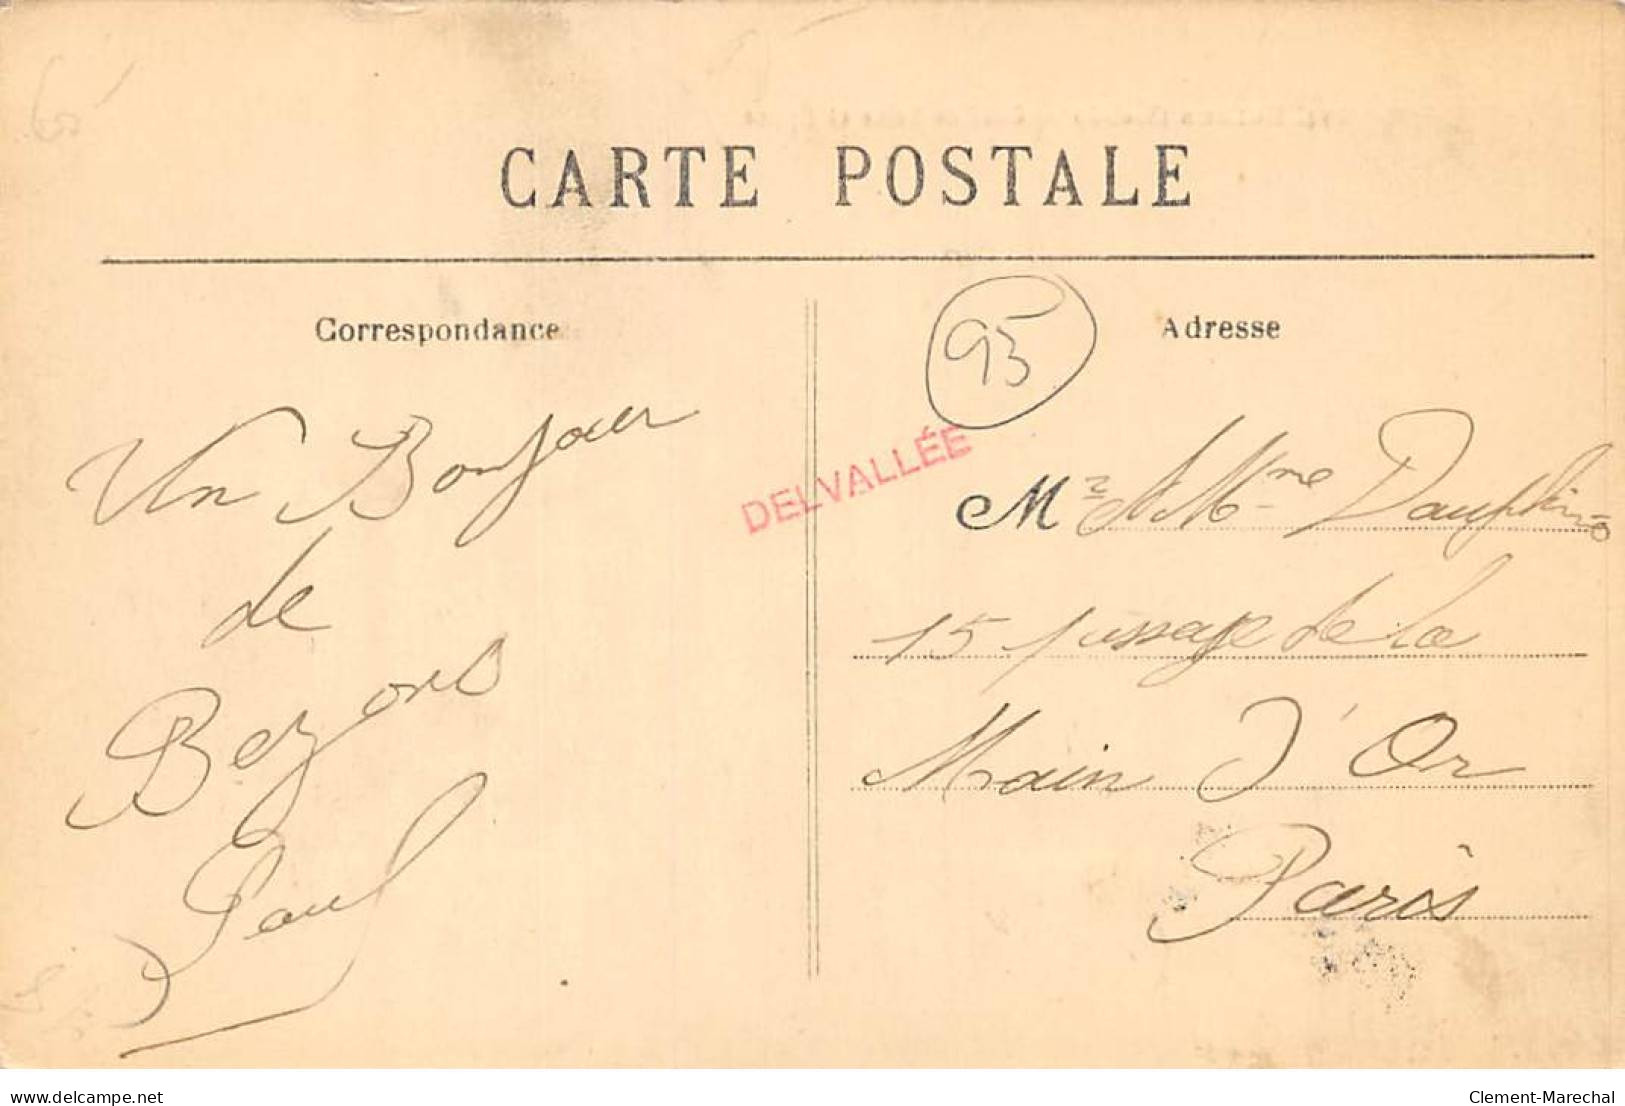 CARTE POSTALE
Correspondance
Adresse
95
DELVALLÉE
Un Bonjour
de
Bezons
Paul
Mr et Mme Dauphin
15 passage de la
Main d'Or
Paris
www.delcampe.net
Clement-Marechal